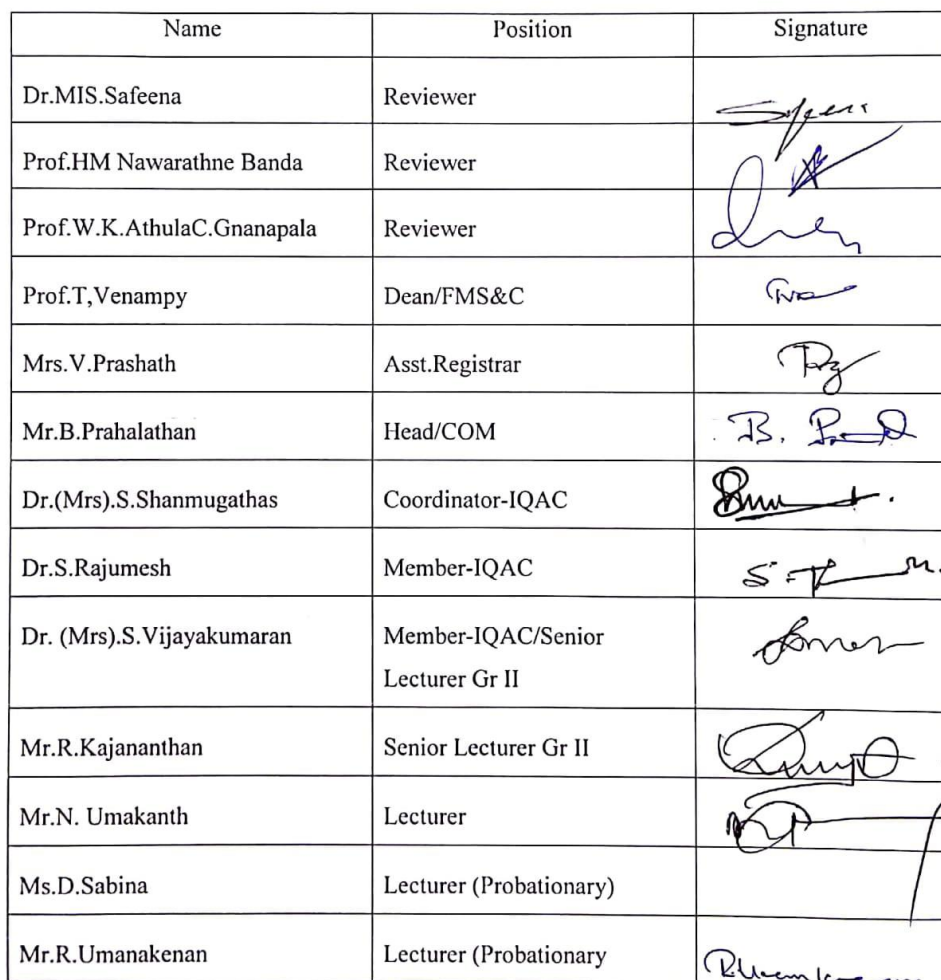 Name Position Signature
Dr.MIS.Safeena Reviewer
Prof.HM Nawarathne Banda Reviewer
Prof.W.K.AthulaC.Gnanapala Reviewer
Prof.T,Venampy Dean/FMS&C
Mrs.V.Prashath Asst.Registrar
Mr.B.Prahalathan Head/COM B.
Dr.(Mrs).S.Shanmugathas Coordinator-IQAC
Dr.S.Rajumesh Member-IQAC
Dr. (Mrs).S.Vijayakumaran Member-IQAC/Senior
Lecturer Gr II
Mr.R.Kajananthan Senior Lecturer Gr II
Mr.N. Umakanth Lecturer
Ms.D.Sabina Lecturer (Probationary)
Mr.R.Umanakenan Lecturer (Probationary